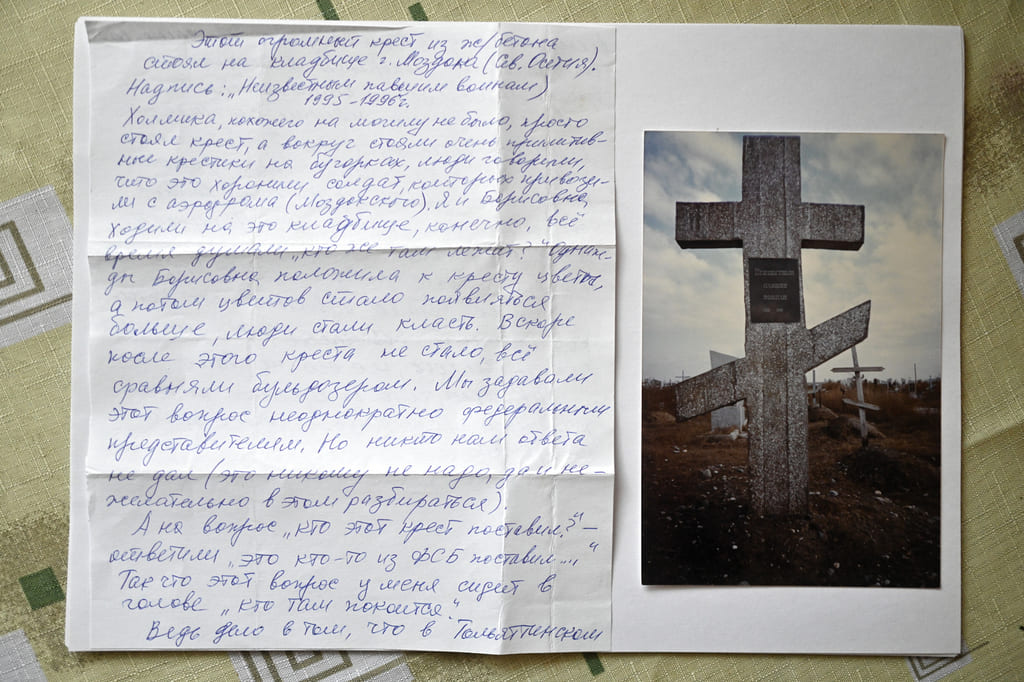 Этот огромный крест из ж/бетона
стоял на кладбище г. Моздока (Сев. Осетия).
Надпись: „Неизвестным павшим воинам)
1995-1996г.
Холмика, похожего на могилу не было, просто
стоял крест, а вокруг стояли очень примитив-
ные крестики на бугорках, люди говорили,
что это хоронили солдат, которых привози-
ли с аэродрома (Моздокского), Я и Борисовна
ходили на это кладбище, конечно, всё
время думали „кто же там лежит?" Однаж-
ды Борисовна положила к кресту цветы,
а потом цветов стало появляться
больше, люди стали класть. Вскоре
после этого креста не стало, всё
сравняли бульдозером. Мы задавали
этот вопрос неоднократно федеральным
представителям. Но никто нам ответа
не дал (это никому не надо, да и не-
желательно в этом разбираться).
А на вопрос „кто этот крест поставил?" –
ответили „это кто-то из ФСБ поставил..."
Так что этот вопрос у меня сидит в
голове „кто там покоится".
Ведь дело в том, что в Тольяттинском
Неизвестным
павшим
воинам